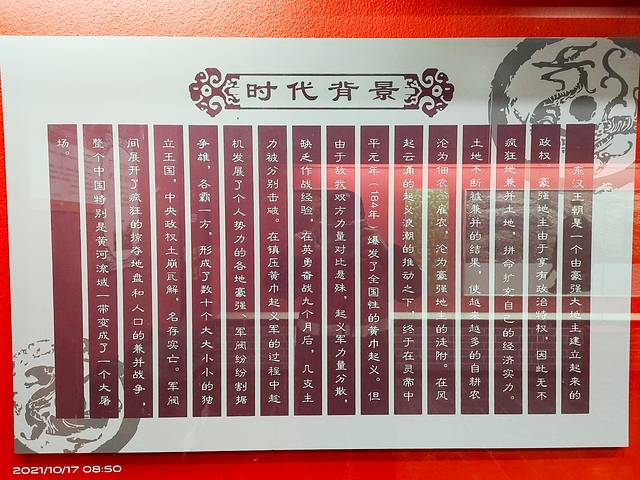 时代背景
东汉王朝是一个由豪强大地主建立起来的
政权，豪强地主由于享有政治特权，因此无不
疯狂地兼并土地，拼命扩充自己的经济实力。
土地不断被兼并的结果，使越来越多的自耕农
沦为佃农、雇农，沦为豪强地主的徒附。在风
起云涌的起义浪潮的推动之下，终于在灵帝中
平元年（184年）爆发了全国性的黄巾起义。但
由于敌我双方力量对比悬殊，起义军力量分散，
缺乏作战经验，在英勇奋战九个月后，几支主
力被分别击破。在镇压黄巾起义军的过程中趁
机发展了个人势力的各地豪强、军阀纷纷割据
争雄，各霸一方，形成了数十个大大小小的独
立王国，中央政权土崩瓦解，名存实亡。军阀
间展开了疯狂的掠夺地盘和人口的兼并战争，
整个中国特别是黄河流域一带变成了一个大屠
场。
2021/10/17 08:50